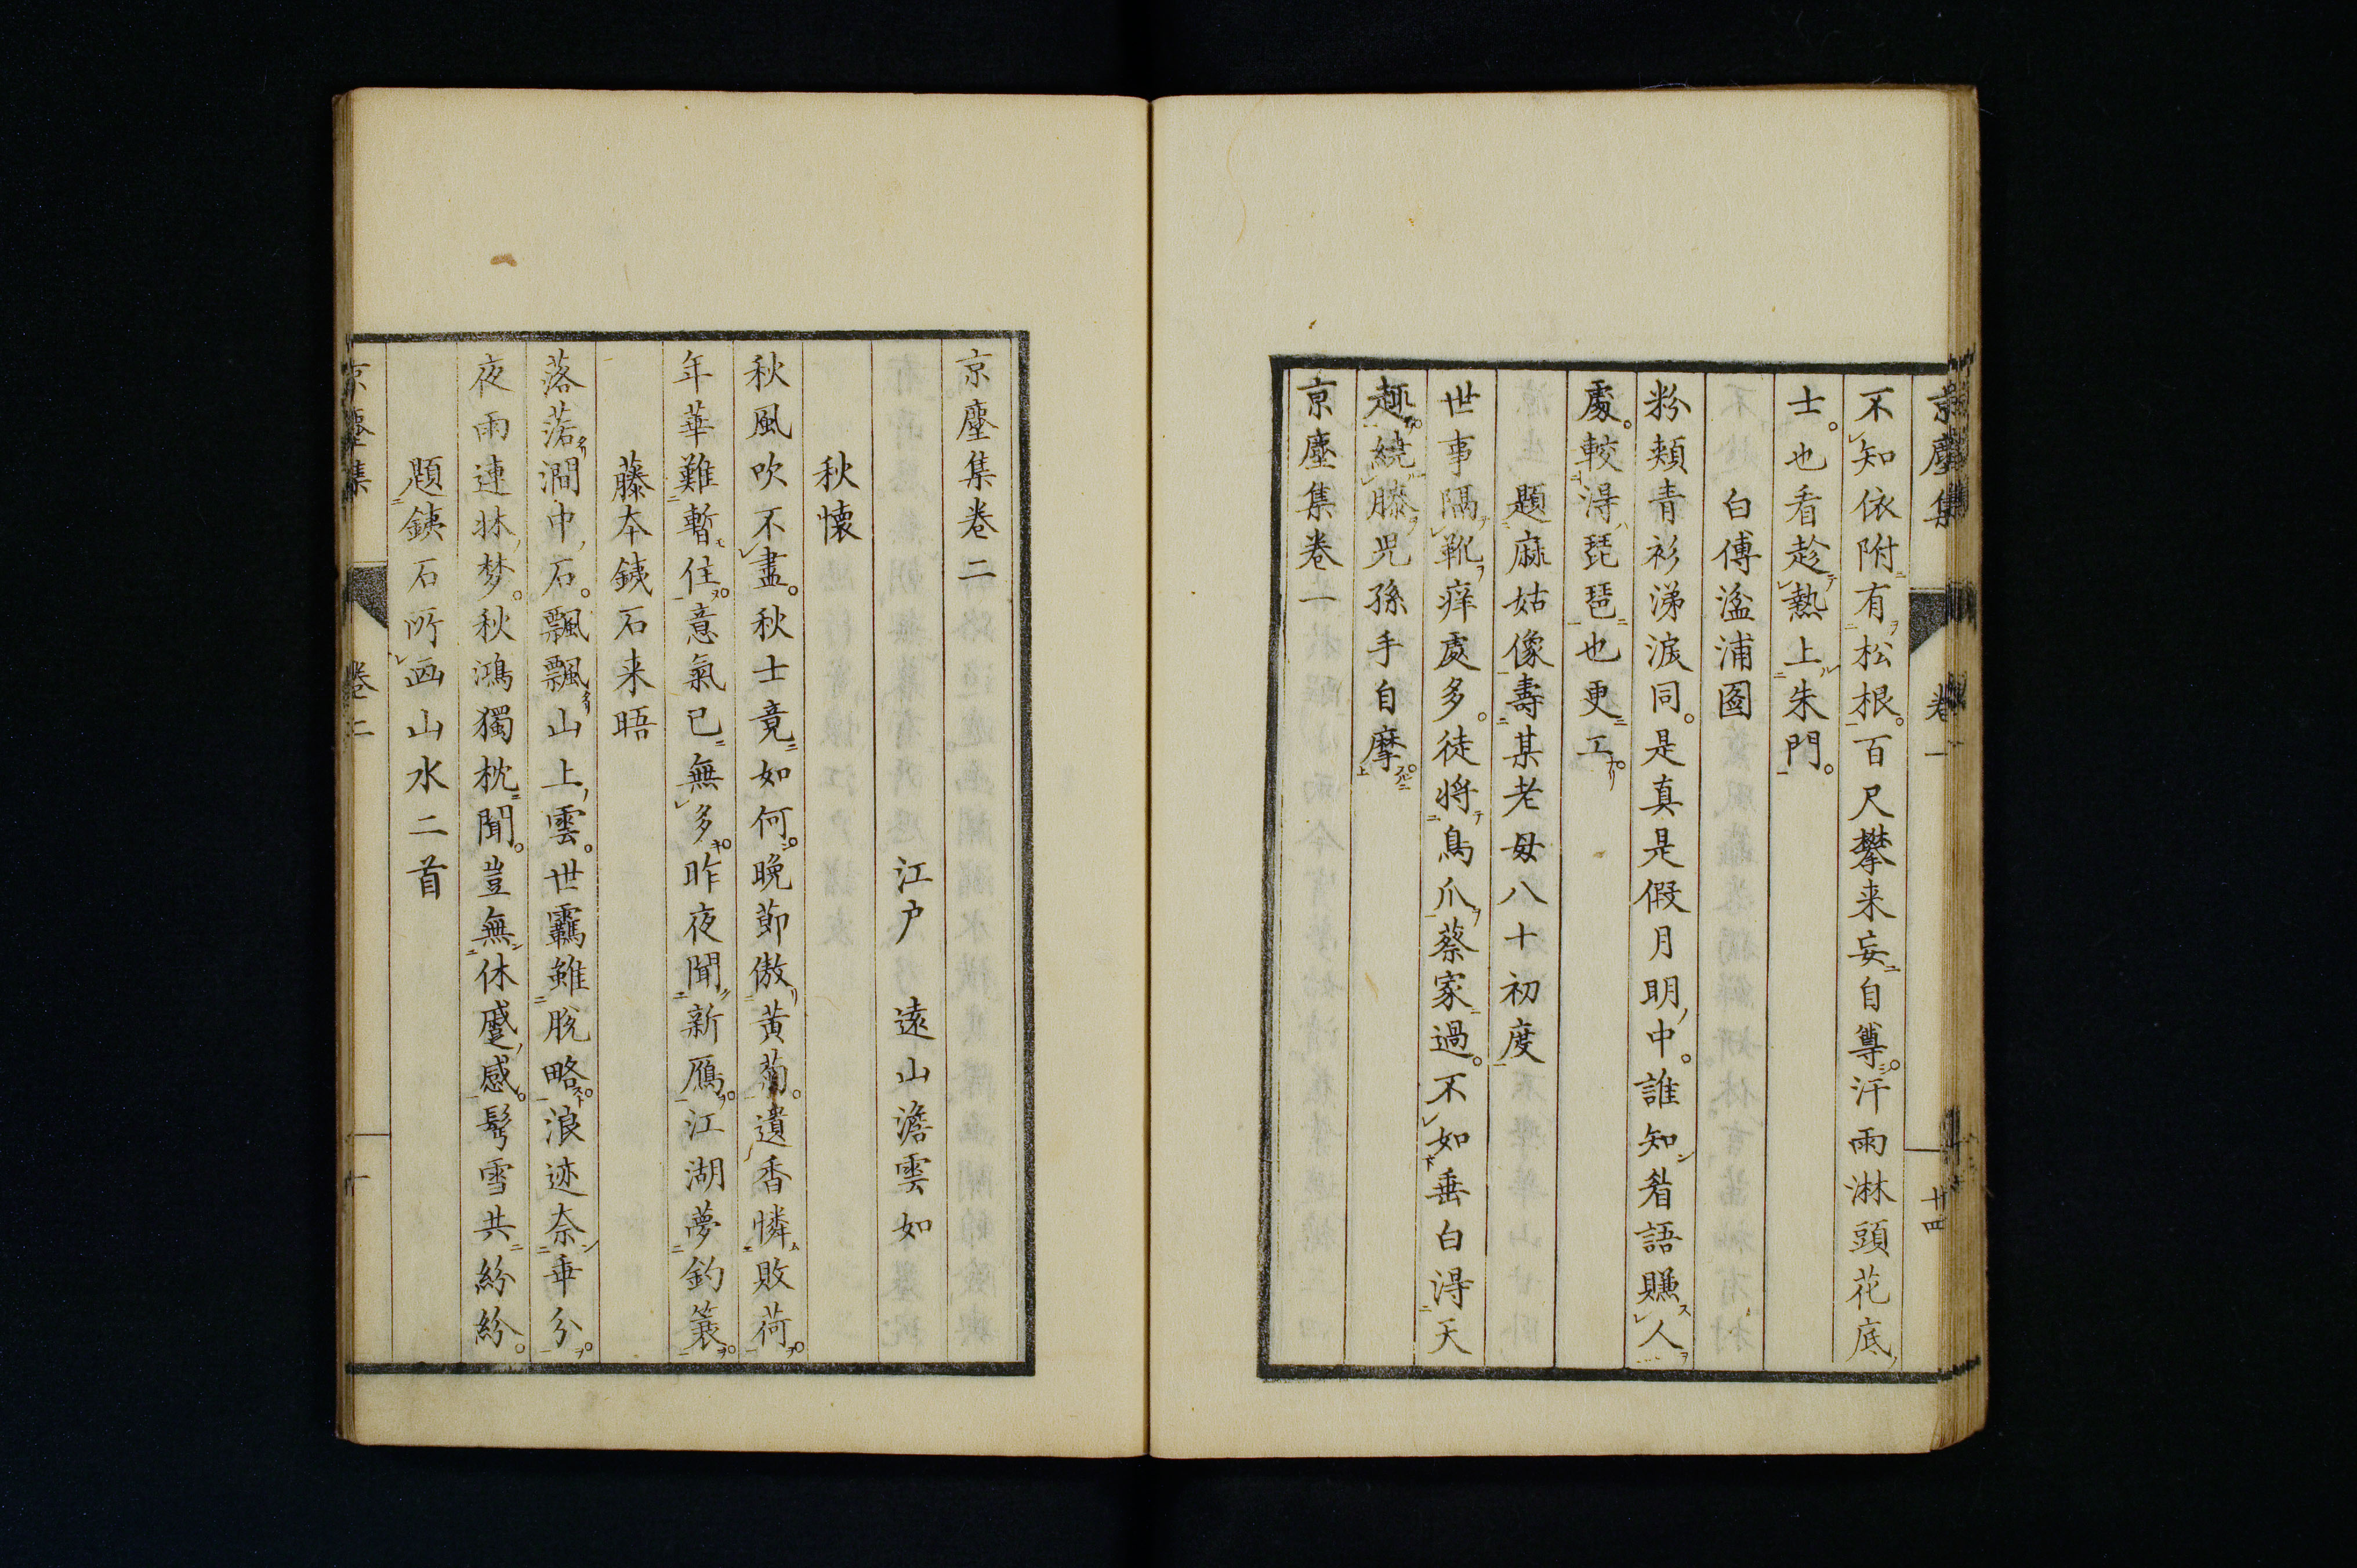 京塵集 卷一 廿四
不知依附有松根。百尺攀来妄自尊。汗雨淋頭花底
士。也看趁熱上朱門。
白傅湓浦圖
粉頰青衫涕淚同。是真是假月明中。誰知眢語賺人
處。較得琵琶也更工。
題麻姑像壽某老母八十初度
世事隔靴痒處多。徒將鳥爪蔡家過。不如垂白得天
趣。繞膝児孫手自摩。
京塵集卷一
京塵集卷二
江戸 遠山澹雲如
秋懐
秋風吹不盡。秋士竟如何。晩節傲黄菊。遺香憐敗荷。
年華難暫住。意氣已無多。昨夜聞新鴈。江湖夢釣簑。
藤本鉄石来晤
落落澗中石。飄飄山上雲。世羈雖脱略。浪迹奈乖分。
夜雨連牀梦。秋鴻獨枕聞。豈無休戚感。鬓雪共紛紛。
題鉄石所画山水二首
京塵集 卷二 一